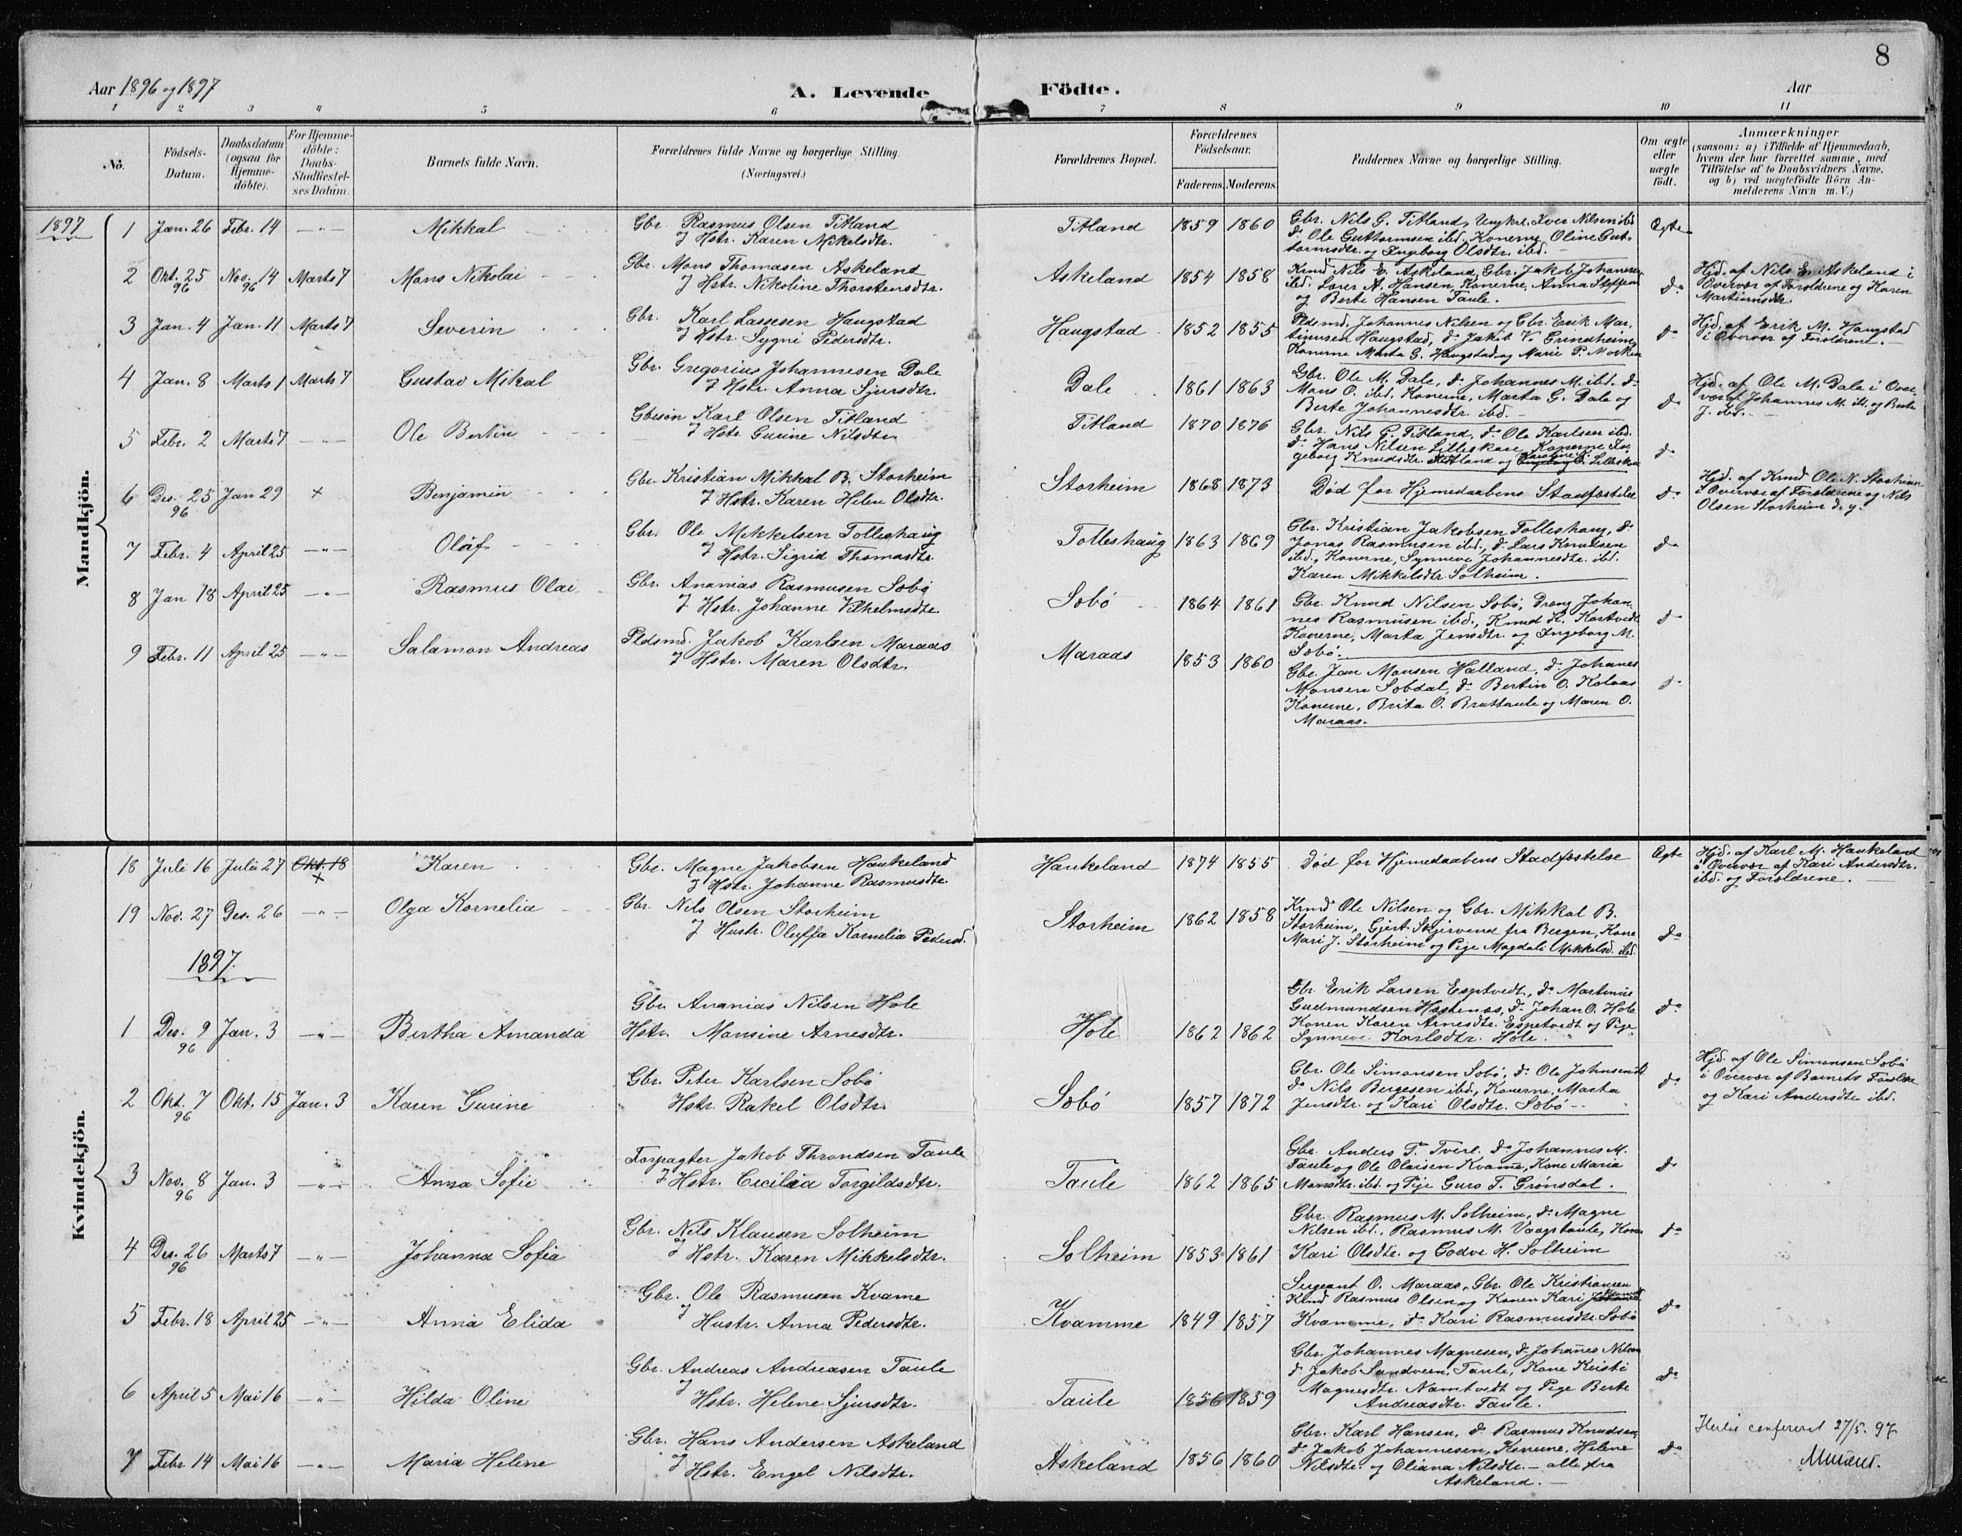 8
Aar 1896 og 1897
A. Levende Födte.
Aar
1 2 3 4 5 6 7 8 9 10 11
No.
Födsels-Datum.
Daabsdatum (ogsaa for Hjemme-döbte).
For Hjemme-döbte: Daabs-Stadfæstel-ses Datum.
Barnets fulde Navn.
Forældrenes fulde Navne og borgerlige Stilling.
(Næringsvei.)
Forældrenes Bopæl.
Forældrenes Födselsaar.
Faderens. Moderens.
Faddernes Navne og borgerlige Stilling.
Om ægte eller uægte födt.
Anmærkninger
(saasom: a) i Tilfælde af Hjemmedaab,
hvem der har forrettet samme, med
Tilföielse af to Daabsvidners Navne,
og b) ved uægtefödte Börn An-
melderens Navn m. V.)
Mandkjön.
1897
1 Jan. 26 Febr. 14 —"— Mikkal
Gbr. Rasmus Olsen Titland
& Hstr. Karen Mikelsdtr.
Titland 1859 1860
Gbr. Nils G. Titland, Ungkrl. Iver Nilsen ibd.
do Ole Guttormsen ibd. Konerne Oline Gut-
tormsdtr og Ingeborg Olsdtr ibd.
Ægte
2 Okt. 25 96 Nov. 14 96 Marts 7 Mons Nikolai
Gbr. Mons Thomasen Askeland
& Hstr. Nikoline Thorstensdtr.
Askeland 1854 1858
Knud Nils E. Askeland, Gbr. Jakob Johannesen
ibd. A. Hansen, Konerne, Anna
og Berte Hansen Taule.
do
Hjd. af Nils E. Askeland i
Overvær af Forældrene og Karen
Martinusdtr.
3 Jan. 4 Jan. 11 Marts 7 Severin
Gbr. Karl Lassesen Haugstad
& Hstr. Sygni Pedersdtr.
Haugstad 1852 1855
Pldsmd. Johannes Nilsen og Gbr. Erik Mar-
tinusen Haugstad, do Jakob V. Grindheim,
Konerne Marta G. Haugstad og Marie P. Morken
do
Hjd. af Erik M. Haugstad
i Overvær af Forældrene.
4 Jan. 8 Marts 1 Marts 7 Gustav Mikal
Gbr. Gregorius Johannesen Dale
& Hstr. Anna Sjursdtr.
Dale 1861 1863
Gbr. Ole M. Dale, do Johannes M. ibd. do
Mons O. ibd. Konerne, Marta G. Dale og
Berte Johannesdtr. ibd.
do
Hjd. af Ole M. Dale i Over-
vær af Johannes M. ib. og Berte
J. ibd.
5 Febr. 2 Marts 7 —"— Ole Bertin
Gbesön Karl Olsen Titland
& Hstr. Gurine Nilsdtr
Titland 1870 1876
Gbr. Nils G. Titland, do Ole Karlsen ibd.
do Hans Nilsen Lilleskare, Konerne In-
geborg Knudsdtr. Titland og
do
6 Des. 25 96 Jan 29 + Benjamin
Gbr. Kristian Mikkal B. Storheim
& Hstr. Karen Helen Olsdtr.
Storheim 1868 1873
Död för Hjemedaabens Stadfæstelse
do
Hjd. af Knud Ole N. Storheim
i Overvær af Forældrene og Nils
Olsen Storheim d. y.
7 Febr. 4 April 25 —"— Olaf
Gbr. Ole Mikkelsen Tolleshaug
& Hstr. Sigrid Thomasdtr.
Tolleshaug 1863 1869
Gbr. Kristian Jakobsen Tolleshaug, do
Jonas Rasmusen ibd., do Lars Knudsen
ibd., Konerne, Synneve Johannesdtr. ibd.
Karen Mikkelsdtr. Solheim.
do
8 Jan 18 April 25 —"— Rasmus Olai
Gbr. Ananias Rasmusen Sæbö
& Hstr. Johanne Vilhelmsdtr
Sæbö 1864 1861
Gbr. Knud Nilsen Sæbö, Dreng Johan-
nes Rasmusen ibd., Knud K. Kartveit
Konerne, Marta Jensdtr. og Ingeborg M.
Sæbö.
do
9 Febr. 11 April 25 —"— Salamon Andreas
Pldsmd. Jakob Karlsen Maraas
& Hstr. Maren Olsdtr.
Maraas 1853 1860
Gbr. Jan Monsen Halland, do Johanes
Monsen Sæbdal, do Bertin O. Kolaas
Konerne, Brita O. Brattaule og Maren O.
Maraas.
do
Kvindekjön.
18 Juli 16 Juli 27 Okt. 18 + Karen
Gbr. Magne Jakobsen Haukeland
& Hstr. Johanne Rasmusdtr.
Haukeland 1874 1855
Död för Hjemedaabens Stadfæstelse
Ægte
Hjd. af Karl M. Haukeland
i Overvær af Kari Andersdtr.
ibd. og Forældrene.
19 Nov. 27 Des. 26 —"— Olga Kornelia
Gbr. Nils Olsen Storheim
& Hustr. Oluffa Kornelia Pedersd.
Storheim 1862 1858
Knud Ole Nilsen og Gbr. Mikkal B.
Storheim, Gjert Skjervend fra Bergen, Kone
Mari J. Storheim og Pige Magdali Mikkelsd. ibd.
do
1897.
1 Des. 9 96 Jan. 3 —"— Bertha Amanda
Gbr. Ananias Nilsen Hole
Hstr. Monsine Arnesdtr.
Hole 1862 1862
Gbr. Erik Larsen Espetvedt, do Martinus
Gudmundsen Hostenes, do Johan O. Hole
Konen Karen Arnesdtr. Espetvedt og Pige
Synneve Karlsdtr. Hole.
do
2 Okt. 7 96 Okt. 15 Jan. 3 Karen Gurine
Gbr. Peter Karlsen Sæbö
Hstr. Rakel Olsdtr.
Sæbö 1857 1872
Gbr Ole Simonsen Sæbö, do Ole Johnsen ib.
do Nils Børgesen ibd., Konerne, Marta
Jensdtr. og Kari Olsdtr. Sæbö
do
Hjd. af Ole Simensen Sæbö
i Overvær af Barnets Forældre
og Kari Andersdtr ibd.
3 Nov. 8 96 Jan. 3 —"— Anna Sofie
Forpagter Jakob Throndsen Taule
& Hstr. Cecilia Torgildsdtr.
Taule 1862 1865
Gbr. Anders T. Tveit. do Johannes M.
Taule og Ole Olaisen Kvame, Kone Maria
Monsdtr. ibd. og Pige Guro T. Grönsdal.
do
4 Des. 26 96 Marts 7 —"— Johanna Sofia
Gbr. Nils Klausen Solheim
& Hstr. Karen Mikkelsdtr.
Solheim 1853 1861
Gbr. Rasmus M. Solheim, do Magne
Nilsen ibd., Rasmus M. Vaagstaule, Kone
Kari Olsdtr. og Godve H. Solheim
do
5 Febr. 18 April 25 —"— Anna Elida
Gbr. Ole Rasmusen Kvame
& Hustr. Anna Pedersdtr.
Kvamme 1849 1857
Sergeant O. Maraas, Gbr. Ole Kristiansen
Knud Rasmus Olsen og Konen Kari
Kvamme, do Kari Rasmusdtr Sæbö
do
6 April 5 Mai 16 —"— Hilda Oline
Gbr. Andreas Andreasen Taule
& Hstr. Helene Sjursdtr.
Taule 1856 1859
Gbr. Johannes Magnesen, do Johanes Nilsen
do Jakob Sandven, Taule, Kone Kristi
Magnesdtr. Namtvedt og Pige Berte
Andreasdtr. Taule.
do
7 Febr 14 Mai 16 —"— Maria Helene
Gbr. Hans Andersen Askeland
& Hstr. Engel Nilsdtr.
Askeland 1856 1860
Gbr. Karl Hansen, do Rasmus Knudsen,
do Jakob Johannesen, Konerne, Helene
Nilsdtr. og Oliana Nilsdtr. — alle fra
Askeland.
do
Hertil confereret 27/5. 97